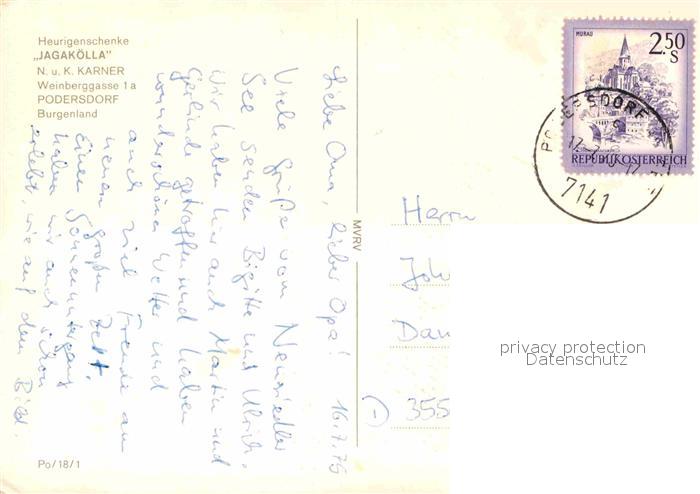 Heurigenschenke
„JAGAKÖLLA"
N. u. K. KARNER
Weinberggasse 1a
PODERSDORF
Burgenland
Liebe Oma, lieber Opa! 16.7.75
Viele Grüße vom Neusiedler
See senden Birgitte und Ulrich.
Wir haben hier auch Martin und
Gerlinde getroffen und haben
wunderschönes Wetter und
auch viel Freude am
neuen großen Zelt.
Einen Sonnenuntergang
haben wir auch schon
erlebt, wie auf dem Bild.
Po/18/1
MVRV
MURAU
2.50
S
REPUBLIK ÖSTERREICH
PODERSDORF
7141
Herrn
Joh
Dan
D 355
privacy protection
Datenschutz